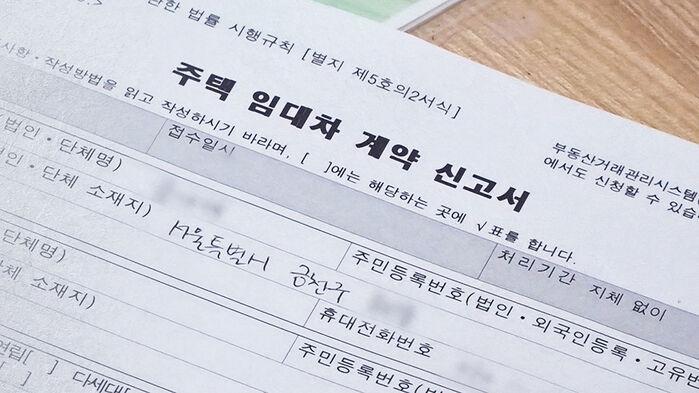 한 법률 시행규칙 [별지 제5호의2서식]
주택 임대차 계약 신고서
부동산거래관리시스템
에서도 신청할 수 있습
사항·작성방법을 읽고 작성하시기 바라며, [ ]에는 해당하는 곳에 √표를 합니다.
접수일시
처리기간 지체 없이
법인·단체명)
주민등록번호(법인·외국인등록·고유번
인·단체 소재지)
서울특별시 금천구
휴대전화번호
단체명)
주민등록번
체 소재지)
연립[ ] 다세대[